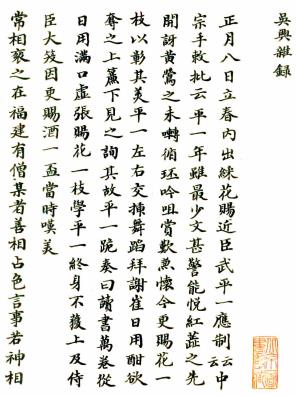 吳興雜錄
正月八日立春內出綵花賜近臣武平一應制云云中
宗手敕批云平一年雖最少文甚警能悅紅蕋之先
開訝黃鶯之未囀循環吟咀賞歎兼懷今更賜花一
枝以彰其美平一左右交揷舞蹈拜謝崔日用酣欲
奪之上簾下見之詢其故平一跪奏曰讀書萬卷從
日用滿口虛張賜花一枝學平一終身不獲上及侍
臣大笑因更賜酒一盃當時嘆美
常相袞之在福建有僧某者善相占色言事若神相